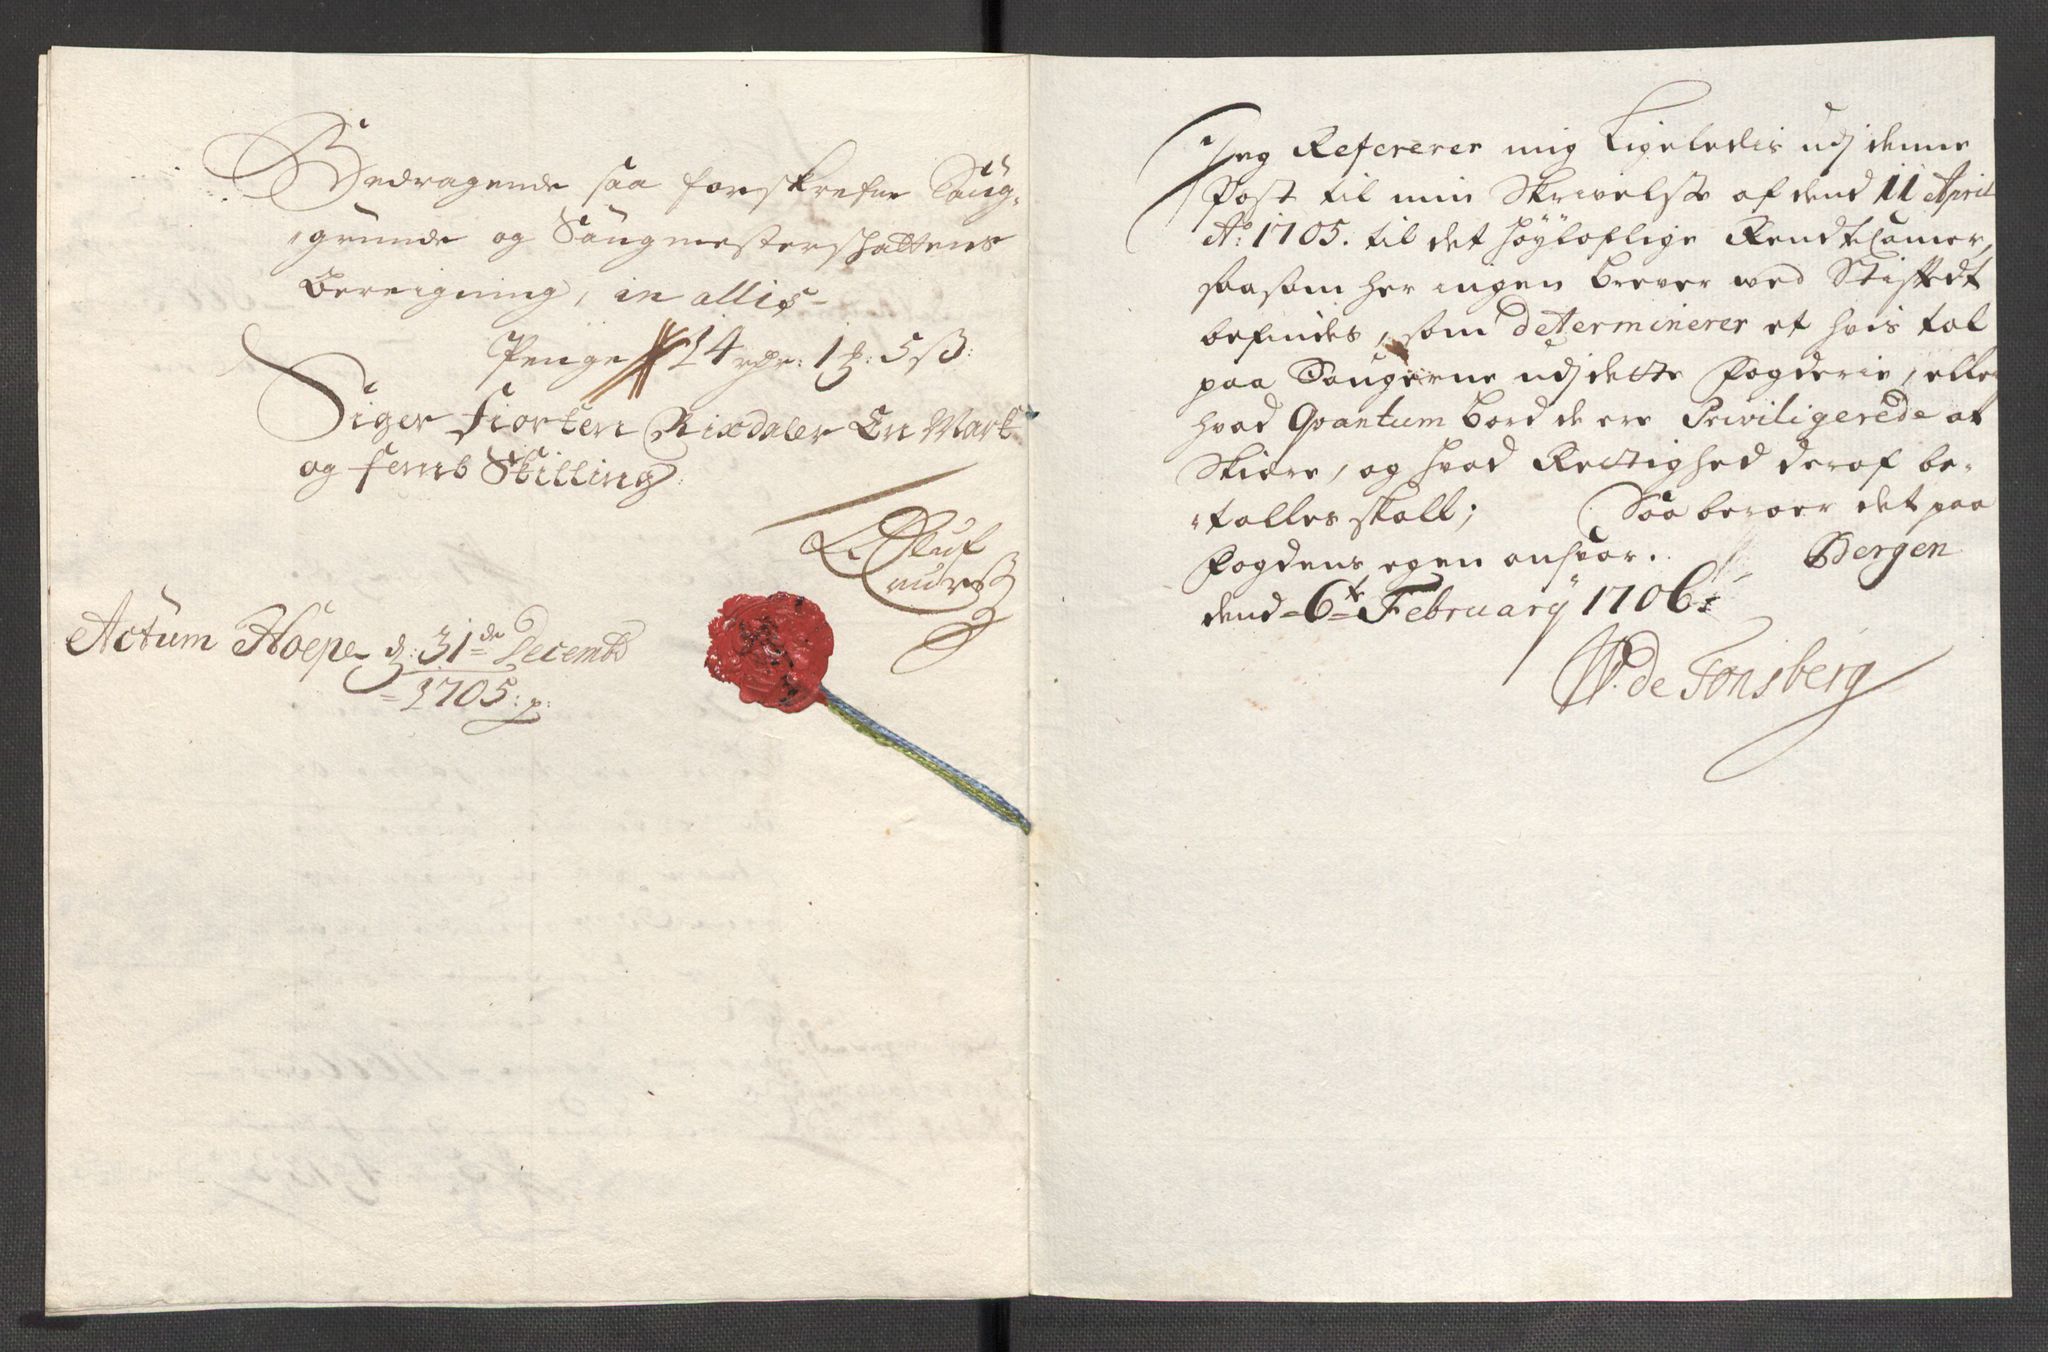 Bedragende saa forskrefne Saug-
grunde og Saugmesterschattens
Bereigning, in allis
Penge 14 rdr: 1 ꝑ: 5 ß:
Siger Fiorten Rixdaler En Mark
og femb Skilling:
Oluf
Laurs
Actum Hoepe d: 31de Decembr
1705: p:
Jeg Refererer mig Ligeledis udj denne
Post til min Skrivelse af dend 11 April
Ao: 1705. til det høyloflige RendteCamer,
saasom her ingen brever wed Stiftedt
befindes, som determinerer et hvis tal
paa Saugerne udj dette Fogderie, eller
hvad Qvantum bord de ere Priviligerede at
Skiære, og hvad Rettighed deraf be-
talles skall; Saa beroer det paa
Fogdens egen ansvar. Bergen
dend 6te February 1706
W. de Tonsberg